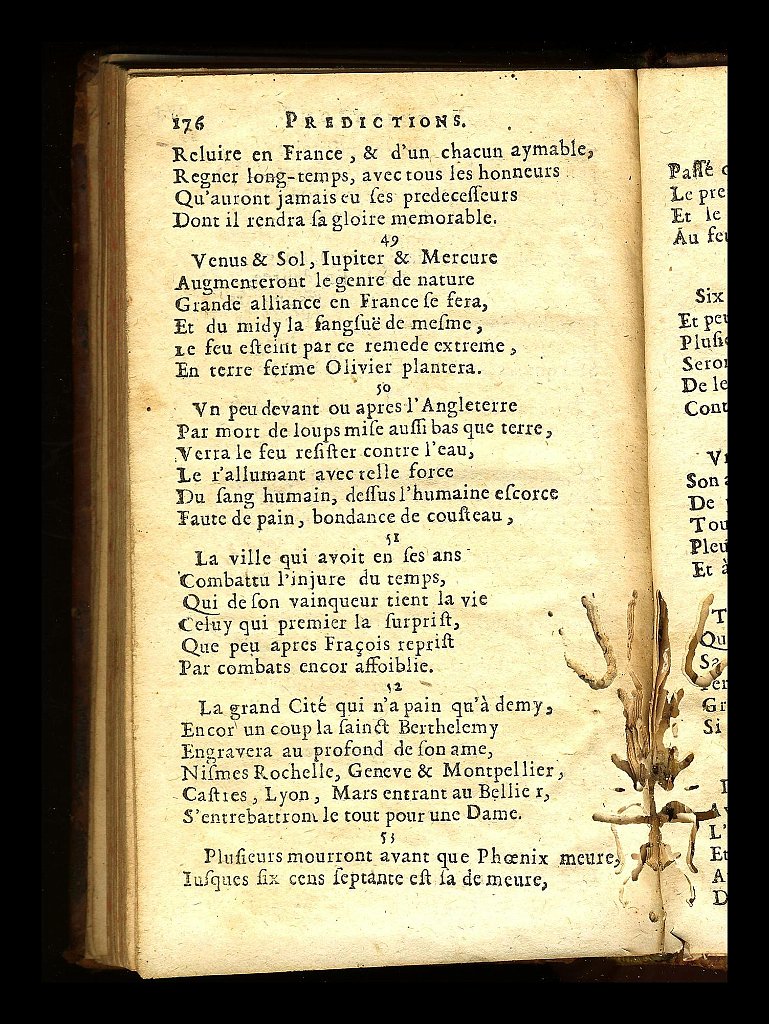 176 PREDICTIONS.
Reluire en France, & d'un chacun aymable,
Regner long-temps, avec tous les honneurs
Qu'auront jamais eu ſes predeceſſeurs
Dont il rendra ſa gloire memorable.
49
Venus & Sol, Iupiter & Mercure
Augmenteront le genre de nature
Grande alliance en France ſe fera,
Et du midy la ſangſuë de meſme,
Le feu eſteint par ce remede extreme,
En terre ferme Olivier plantera.
50
Vn peu devant ou apres l'Angleterre
Par mort de loups miſe auſſi bas que terre,
Verra le feu reſiſter contre l'eau,
Le r'allumant avec telle force
Du ſang humain, deſſus l'humaine eſcorce
Faute de pain, bondance de couſteau,
51
La ville qui avoit en ſes ans
Combattu l'injure du temps,
Qui de ſon vainqueur tient la vie
Celuy qui premier la ſurpriſt,
Que peu apres Fraçois repriſt
Par combats encor affoiblie.
52
La grand Cité qui n'a pain qu'à demy,
Encor un coup la ſainct Berthelemy
Engravera au profond de ſon ame,
Niſmes Rochelle, Geneve & Montpellier,
Caſtres, Lyon, Mars entrant au Bellier,
S'entrebattront le tout pour une Dame.
53
Pluſieurs mourront avant que Phœnix meure,
Iuſques ſix cens ſeptante eſt ſa demeure,
Paſſé
Le pre
Et le
Au feu
Six
Et peu
Pluſie
Seron
De le
Cont
Vn
Son a
De
Tou
Pleu
Et à
T
Qu
Sa
Gr
Si
L'
Et
A
D